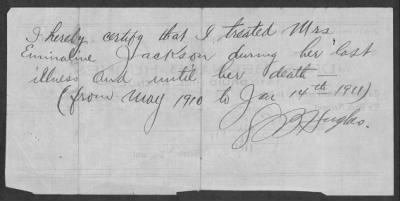 I hereby certify that I treated Mrs
Emmaline Jackson during her last
illness and until her death —
(from May 1910 to Jan 14th 1911)
Hughes.